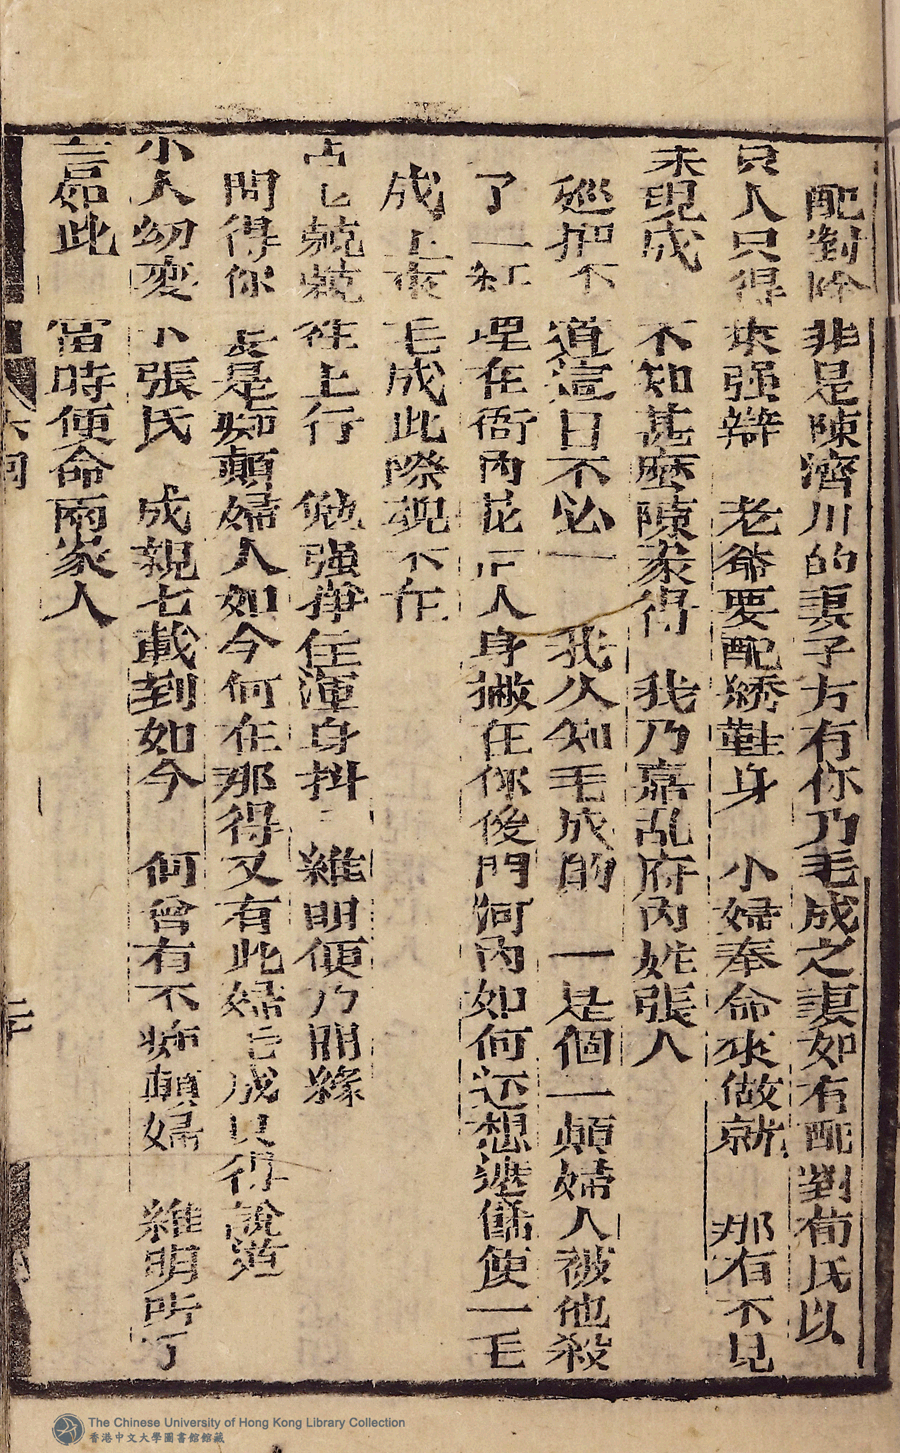 配對 非是陳濟川的妻子方有你乃毛成之妻如有配劉荀氏以
只人只得來强辯 老爺要配綉鞋身 小婦奉命來做就 那有不見
未現成 不知甚麽陳家得 我乃嘉乱府內姓張人
巡把不道這日不必一 我久知毛成的 一是個一顛婦人被他殺
了一紅 埋在衙內花 人身撇在你後門河內如何还想 使一毛
成 毛成此際魂不在
兢兢 往上行 勉强挣住渾身抖 維明便乃開緣
問得你 是痴顛婦人如今何在那得又有此婦毛成只得說道
小人幼変 小張氏 成親七載到如今 何曾有不痴顛婦 維明所了
言如此 當時便命兩家人
The Chinese University of Hong Kong Library Collection
香港中文大學圖書館館藏